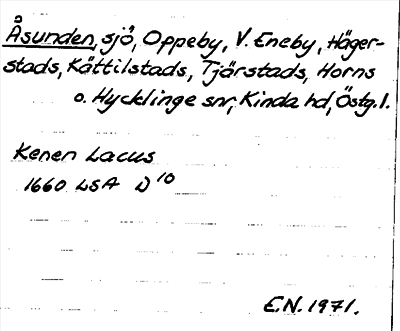 Åsunden, sjö, Oppeby, V. Eneby, Häger-
stads, Kättilstads, Tjärstads, Horns
o. Hycklinge snr, Kinda hd, Östg.l.
Kenen Lacus
1660 LSA D 10
E.N. 1971.